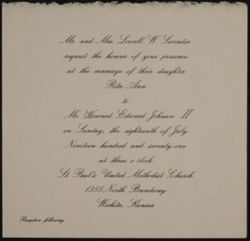 Mr. and Mrs. Lowell W.
request the honour of your presence
at the marriage of their daughter
Rita Ann
to
Mr. Howard Edward Johnson II
on Sunday, the eighteenth of July
Nineteen hundred and seventy-one
at three o'clock
St. Paul's United Methodist Church
1356 North Broadway
Wichita, Kansas
Reception following